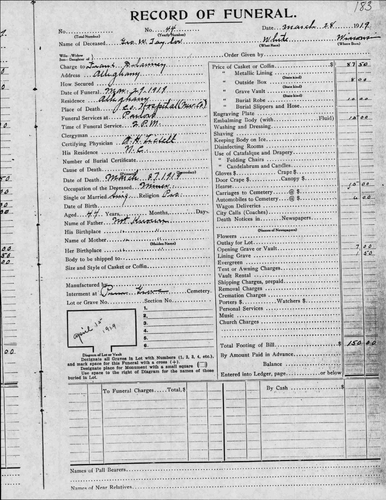 183
RECORD OF FUNERAL.
No. 44 Date, March 28 1919
(Total Number) (Yearly Number)
Name of Deceased Geo. W. Taylor White Missouri
(What Race) (Where Born)
Charge to
Order Given by
Address Alleghany
How Secured
Date of Funeral Mar. 29 1919
Residence Alleghany
Place of Death Co. Hospital (Nev. Co.)
Funeral Services at Parlors
Time of Service 2 P.M.
Clergyman
Certifying Physician
His Residence N.C.
Number of Burial Certificate
Cause of Death
Date of Death March 27 1919
Occupation of the Deceased Miner
Single or Married Sing Religion Pro
Date of Birth
Aged 47 Years, Months, Days
Name of Father Not Known
His Birthplace
Name of Mother
(Maiden Name)
Her Birthplace
Body to be shipped to
Size and Style of Casket or Coffin
Manufactured by
Interment at Pine Grove Cemetery
Lot or Grave No. Section No.
1
2
3
4
5
6
7
8
April 15 1919
Diagram of Lot or Vault
Designate all Graves in Lot with Numbers (1, 2, 3, 4, etc.), and mark space for this Funeral with a cross (+).
Designate place for Monument with a small square
Use space to the right of Diagram for the names of those buried in Lot.
Price of Casket or Coffin $ 87 50
" Metallic Lining
(State kind)
" Outside Box
(State kind)
" Grave Vault
(State kind)
" Burial Robe 10 00
" Burial Slippers and Hose
Engraving Plate
Embalming Body (with Fluid) 15 00
Washing and Dressing
Shaving
Keeping Body on Ice
Disinfecting Rooms
Use of Catafalque and Drapery
" Folding Chairs
" Candelabrum and Candles
Gloves $ Crape $
Door Crape $ Canopy $
Hearse 15 00
Carriages to Cemetery @ $
Automobiles to Cemetery @ $
Wagon Deliveries
City Calls (Coaches)
Death Notices in Newspapers
(Names of Newspapers)
Flowers
Outlay for Lot
Opening Grave or Vault
Lining Grave
Evergreen
Tent or Awning Charges
Vault Rental
Shipping Charges, prepaid
Removal Charges
Cremation Charges
Porters $ Watchers $
Personal Services
Music
Church Charges
Total Footing of Bill $ 150 00
By Amount Paid in Advance
Balance
Entered into Ledger, page or below.
To Funeral Charges Total, $ By Cash $
Names of Pall Bearers
Names of Near Relatives